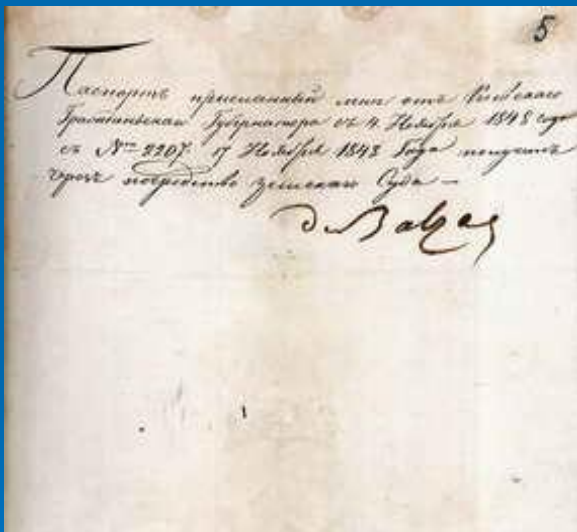 5
Паспортъ присланный мнѣ отъ Кіевскаго
Гражданскаго Губернатора отъ 4. Ноября 1848 года
съ № 2207. 17 Ноября 1848 Года получилъ
чрезъ посредство земскаго Суда —
de Balzac